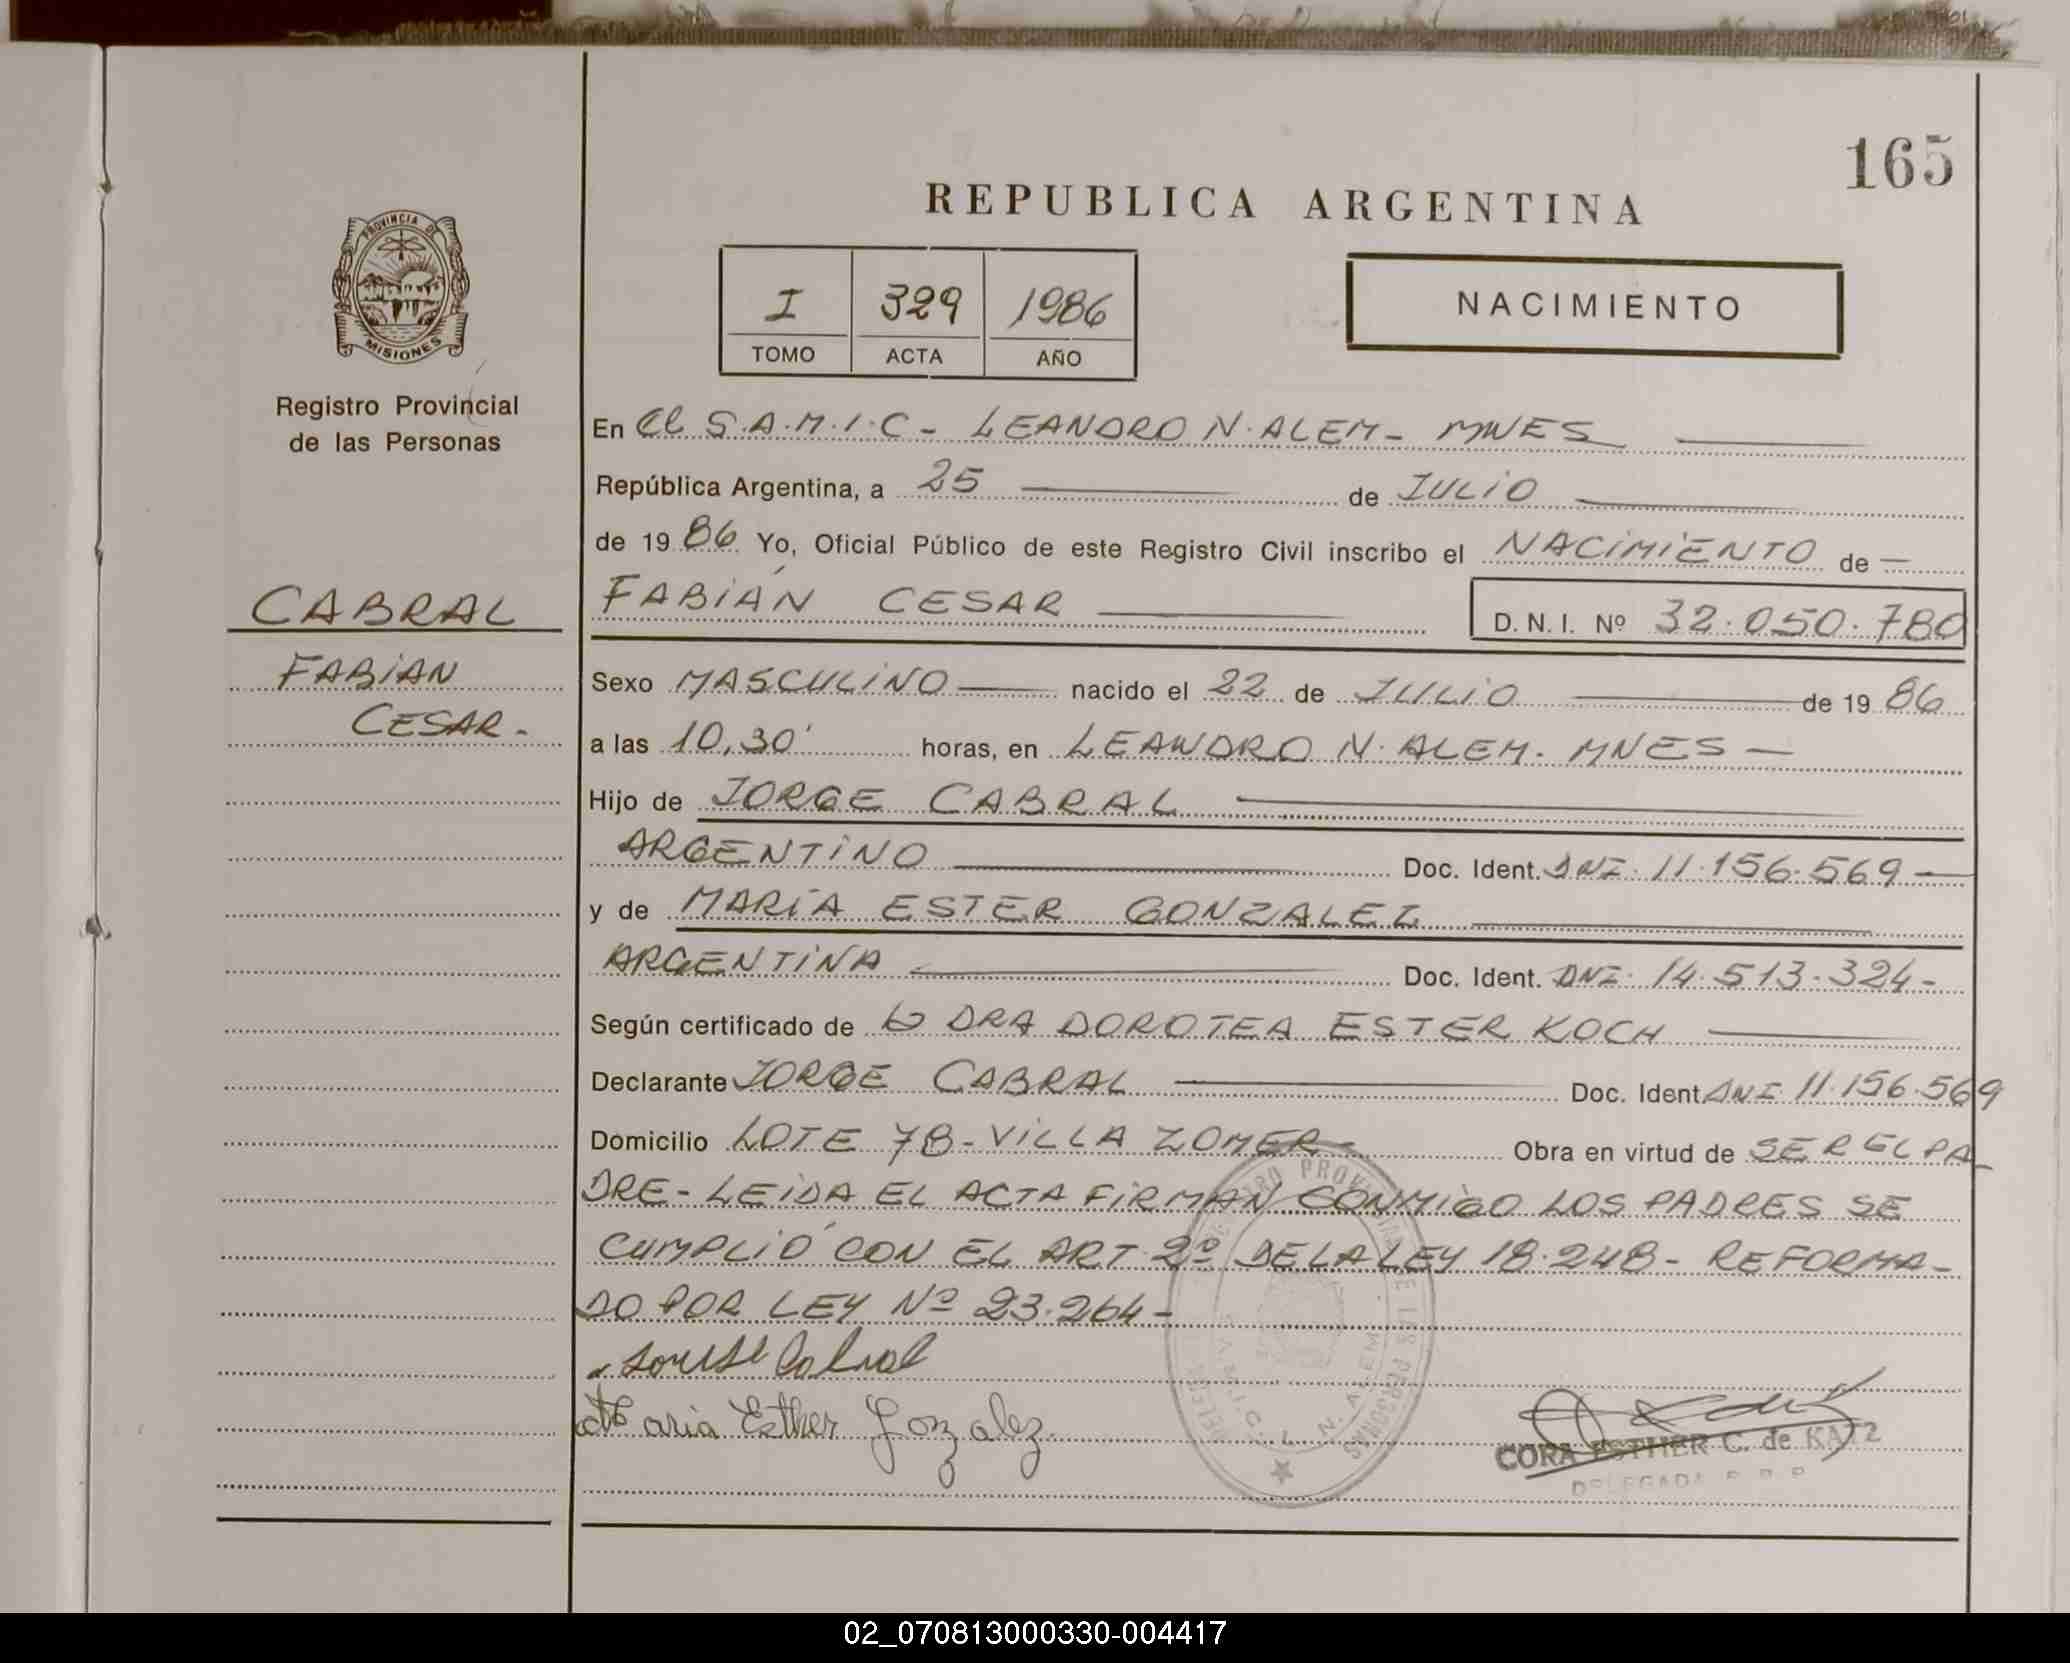 165
REPUBLICA ARGENTINA
PROVINCIA DE
MISIONES
I 329 1986
TOMO ACTA AÑO
NACIMIENTO
Registro Provincial
de las Personas
En El S.A.M.I.C - LEANDRO N. ALEM - MNES
República Argentina, a 25 de JULIO
de 1986 Yo, Oficial Público de este Registro Civil inscribo el NACIMIENTO de
CABRAL
FABIÁN CESAR
D. N. I. Nº 32.050.780
FABIAN
CESAR.
Sexo MASCULINO nacido el 22 de JULIO de 1986
a las 10,30' horas, en LEANDRO N. ALEM. MNES
Hijo de JORGE CABRAL
ARGENTINO Doc. Ident. DNI. 11.156.569
y de MARÍA ESTER GONZALEZ
ARGENTINA Doc. Ident. DNI. 14.513.324-
Según certificado de DRA DOROTEA ESTER KOCH
Declarante JORGE CABRAL Doc. Ident DNI 11.156.569
Domicilio LOTE 78 - VILLA ZOMER Obra en virtud de SER EL PA-
DRE - LEIDA EL ACTA FIRMAN CONMIGO LOS PADRES SE
CUMPLIÓ CON EL ART. 2º DE LA LEY 18.248 - REFORMA-
DO POR LEY Nº 23.264 -
Cabral
Maria Esther Gonzalez.
CORA ESTHER C. de KATZ
DELEGADA R. P. P.
02_070813000330-004417